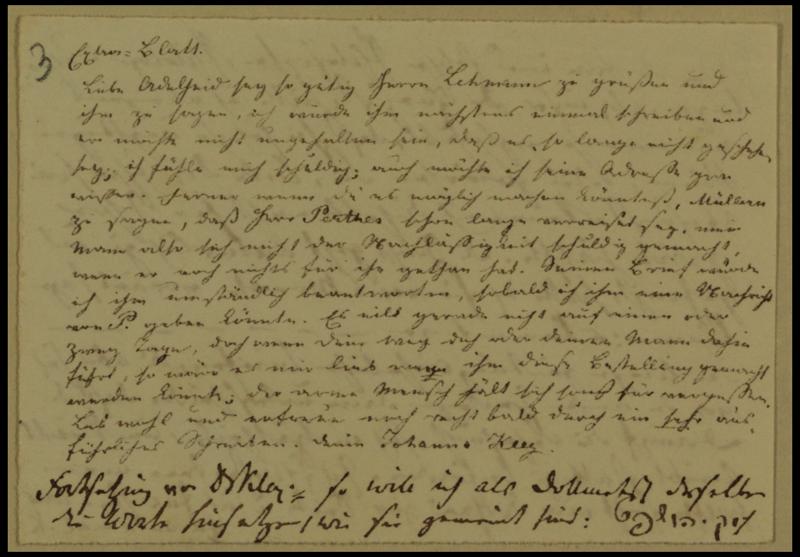 3
Extra=Blatt.
Liebe Adelheid sey so gütig Herrn Lehmann zu grüßen und
ihm zu sagen, ich würde ihm nächstens einmal schreiben und
er möchte nicht ungehalten sein, daß es so lange nicht geschehen
sey; ich fühle mich schuldig; auch möchte ich seine Adresse gern
wissen. Ferner wenn du es möglich machen könntest, Müllern
zu sagen, daß Herr Perthes schon lange verreiset sey. mein
Mann also sich nicht der Nachläßigkeit schuldig gemacht,
wenn er noch nichts für ihn gethan hat. Seinen Brief würde
ich ihm umständlich beantworten, sobald ich ihm eine Nachricht
von P. geben könnte. Es eilt gerade nicht auf einen oder
zwey Tage, doch wenn dein Weg dich oder deinen Mann dahin
führt, so wäre es mir lieb wenn ihm diese Bestellung gemacht
werden könnte; der arme Mensch hält sich sonst für vergessen.
Leb wohl und erfreue mich recht bald durch ein sehr aus-
führliches Schreiben. Deine Johanna
Fortsetzung von so will ich als Dollmetsch derselben
die Worte hinsetzen, wie sie gemeint sind: